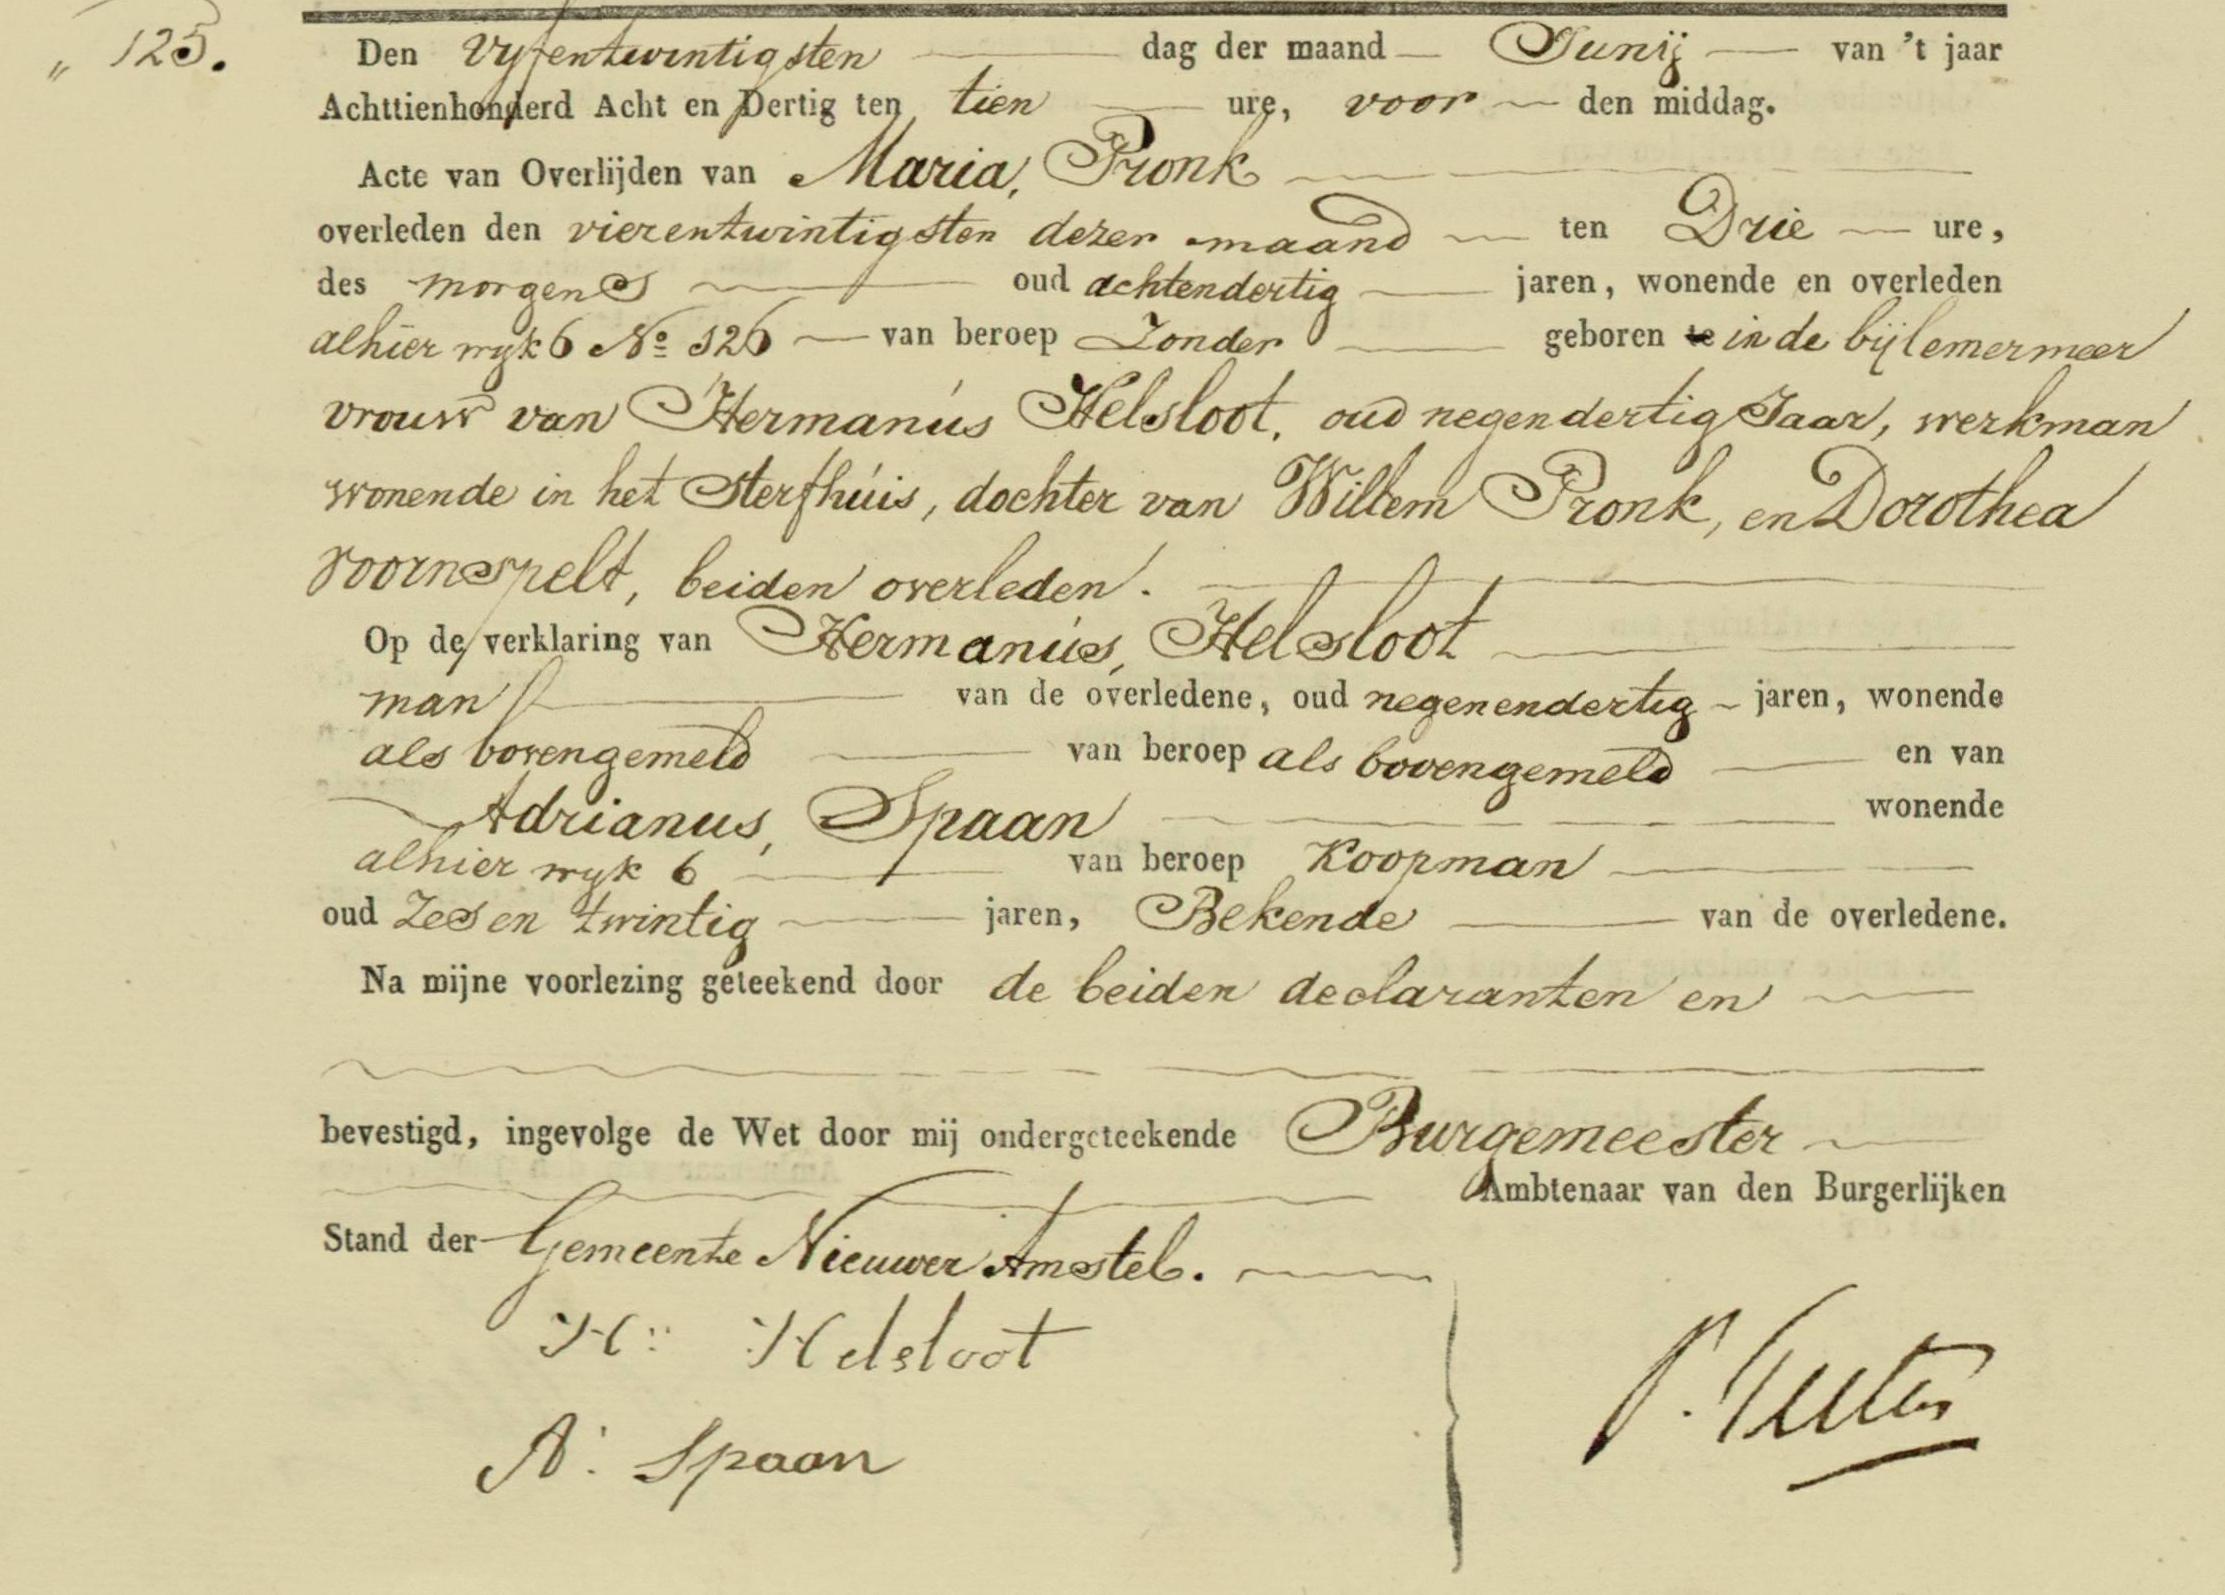 „ 125.
Den Vyfentwintigsten dag der maand Junij van 't jaar
Achttienhonderd Acht en Dertig ten tien ure, voor den middag.
Acte van Overlijden van Maria, Pronk
overleden den vierentwintigsten dezer maand ten Drie ure,
des morgens oud achtendertig jaren, wonende en overleden
alhier wyk 6 No 126 van beroep Zonder geboren te in de bijlemermeer
vrouw van Hermanús Helsloot, oud negendertig Jaar, werkman
wonende in het Sterfhúis, dochter van Willem Pronk, en Dorothea
voornspelt, beiden overleden.
Op de verklaring van Hermanús, Helsloot
man van de overledene, oud negenendertig jaren, wonende
als bovengemeld van beroep als bovengemeld en van
Adrianus, Spaan wonende
alhier wyk 6 van beroep Koopman
oud Zes en twintig jaren, Bekende van de overledene.
Na mijne voorlezing geteekend door de beiden declaranten en
bevestigd, ingevolge de Wet door mij ondergeteekende Burgemeester
Ambtenaar van den Burgerlijken
Stand der Gemeente Nieuwer Amstel.
H: Helsloot
A: Spaan